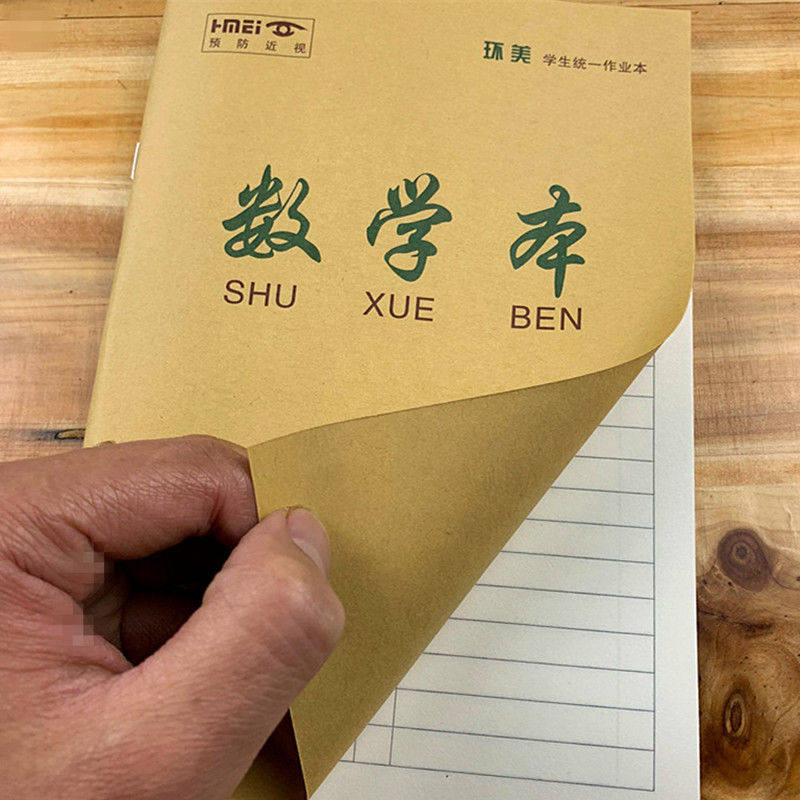 HMEi
预防近视
环美 学生统一作业本
数学本
SHU XUE BEN